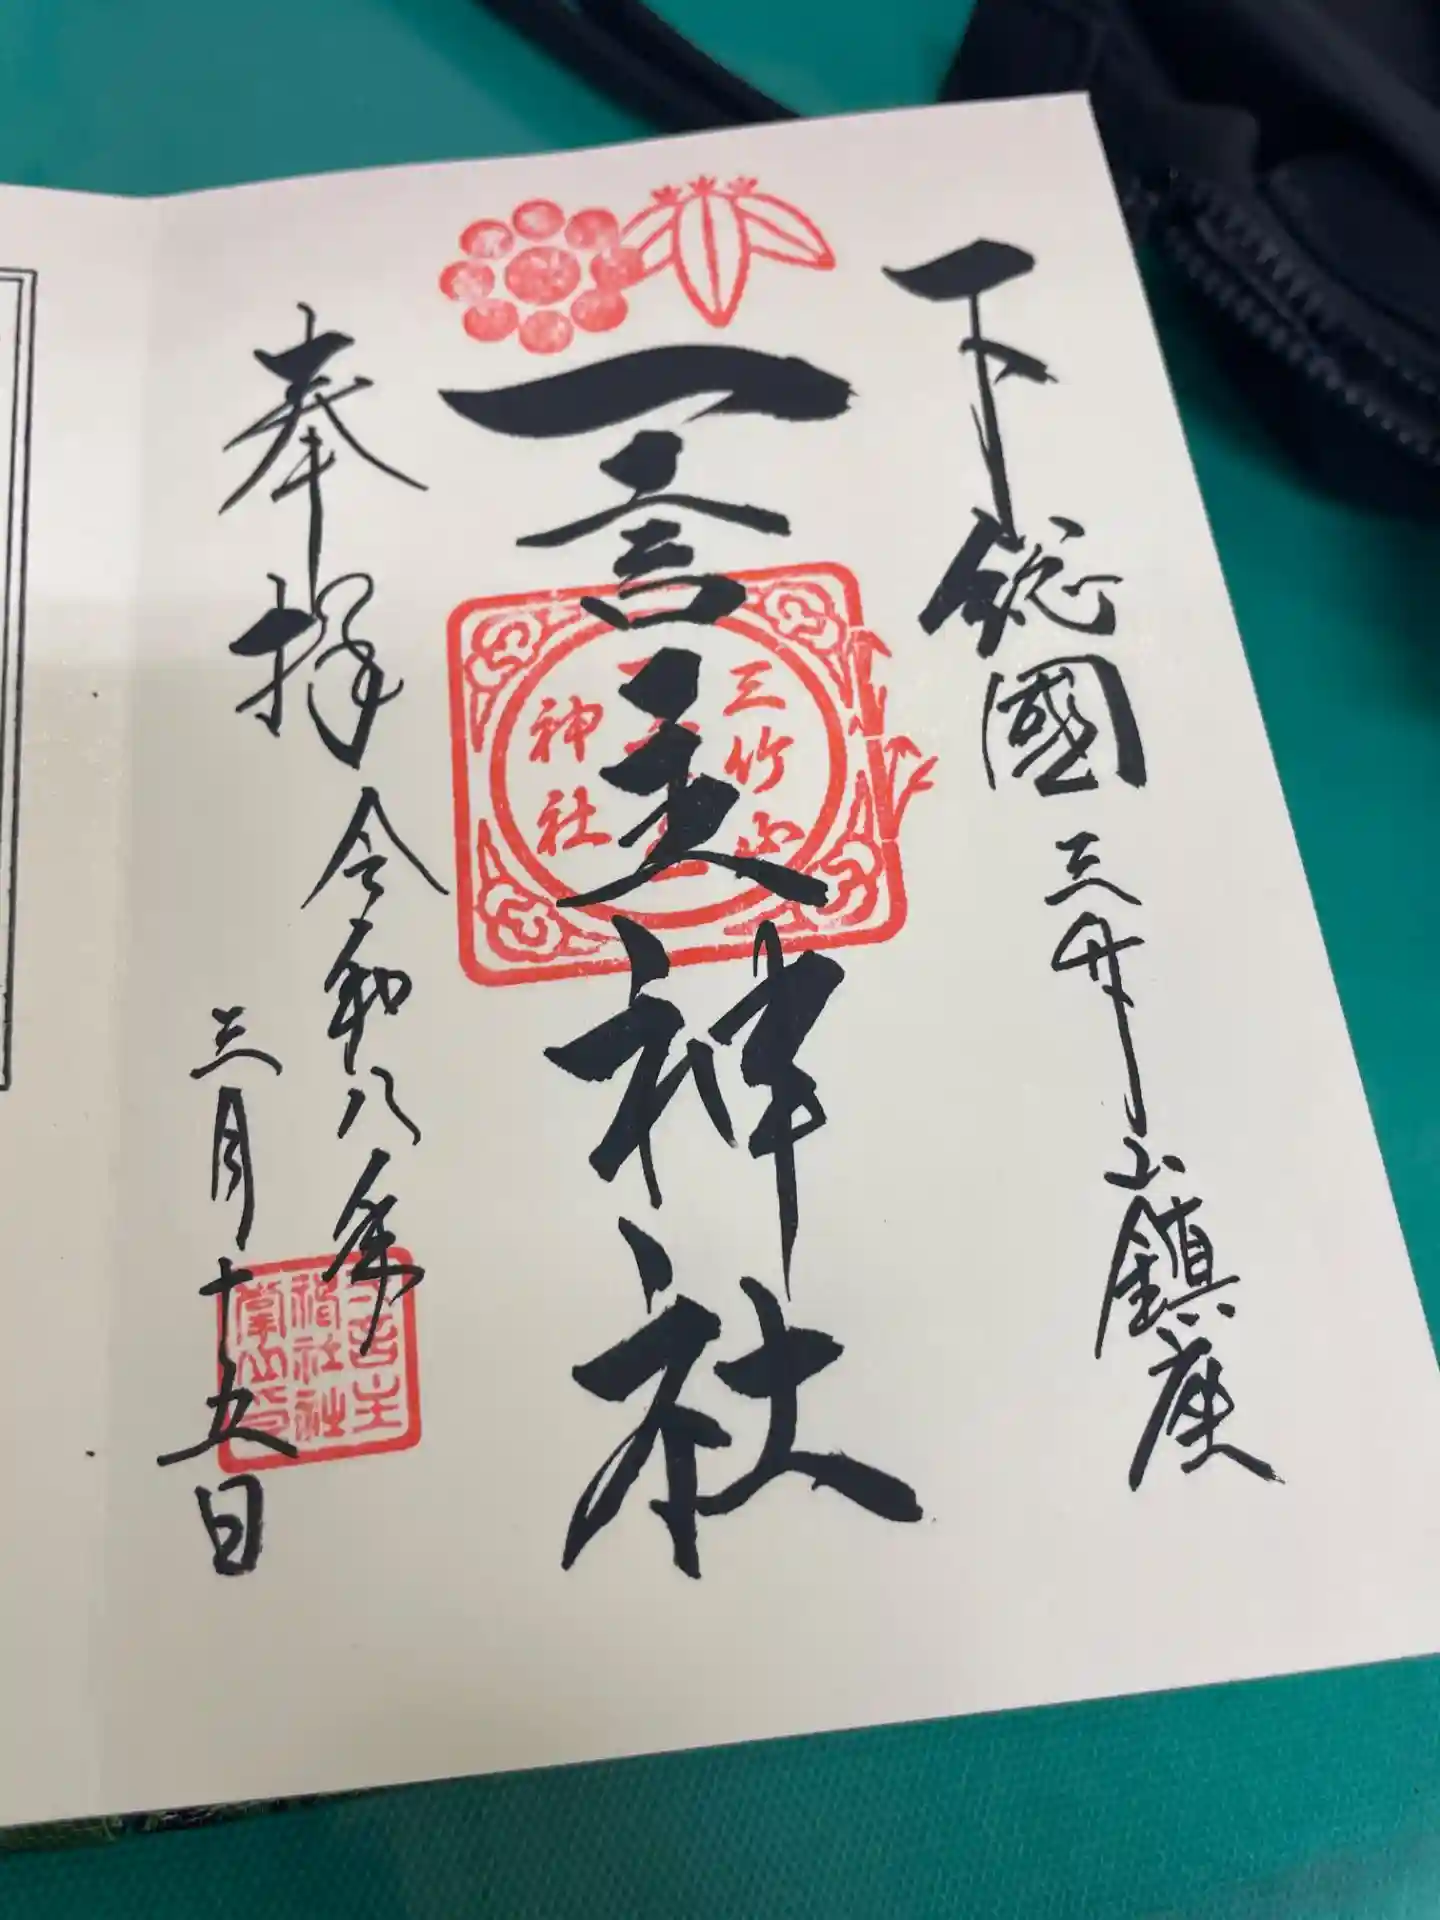 下総國三竹山鎮座
一言主神社
奉拝
令和八年
三月十五日
三竹山
神社
一言主
神社社
掌之印